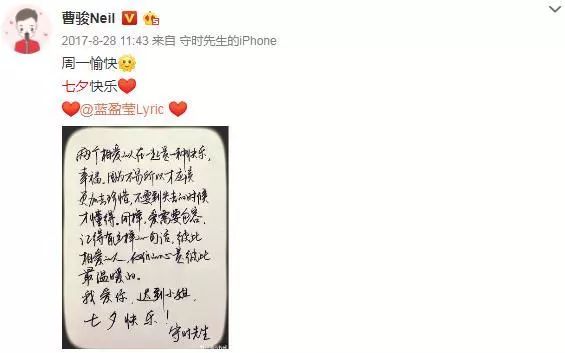 曹骏Neil
2017-8-28 11:43 来自 守时先生的iPhone
周一愉快
七夕快乐
@蓝盈莹Lyric
两个相爱的人在一起是一种快乐,
幸福,因为不易所以才应该
更加去珍惜,不要到失去的时候
才懂得。同样,爱需要包容,
记得有这样的一句话,彼此
相爱的人,他们的心是彼此
最温暖的。
我爱你,迟到小姐,
七夕快乐!
守时先生